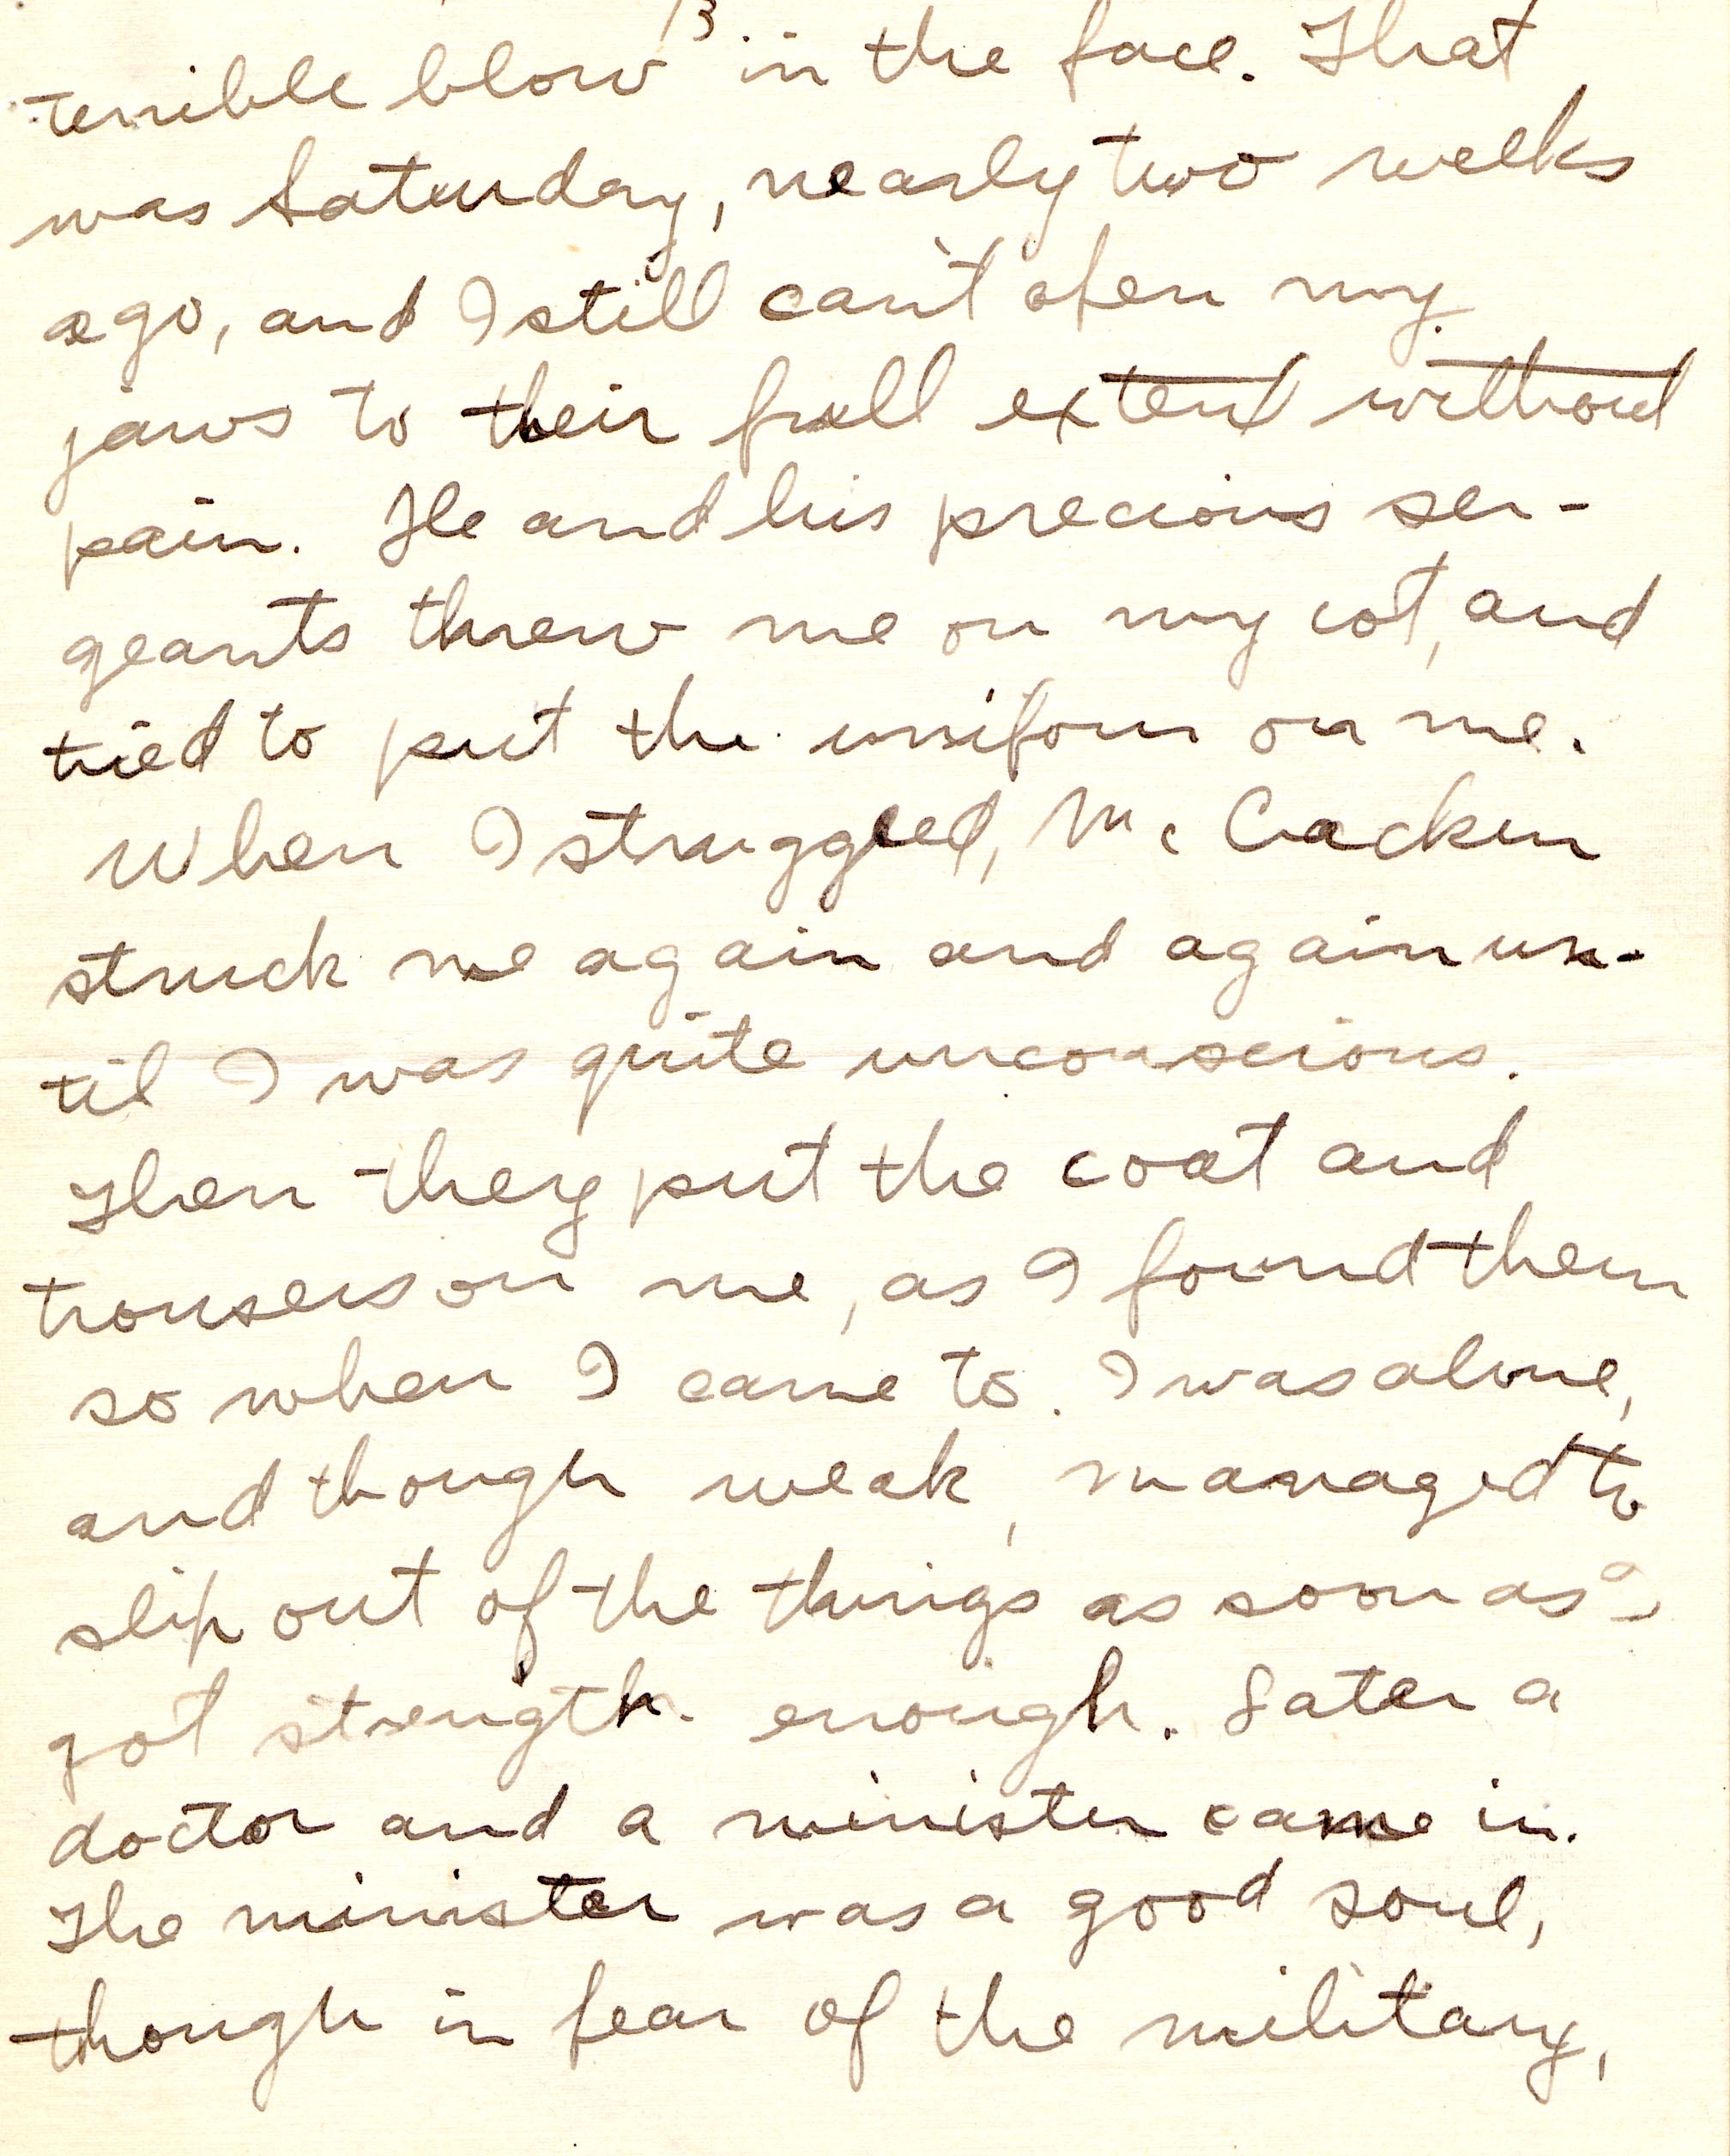 13
terrible blow in the face. That
was Saturday, nearly two weeks
ago, and I still can't open my
jaws to their full extent without
pain. He and his precious ser-
geants threw me on my cot, and
tried to put the uniform on me.
When I struggled, Mc Cracken
struck me again and again un-
til I was quite unconscious.
Then they put the coat and
trousers on me, as I found them
so when I came to. I was alone,
and though weak, managed to
slip out of the things as soon as I
got strength enough. Later a
doctor and a minister came in.
The minister was a good soul,
though in fear of the military,